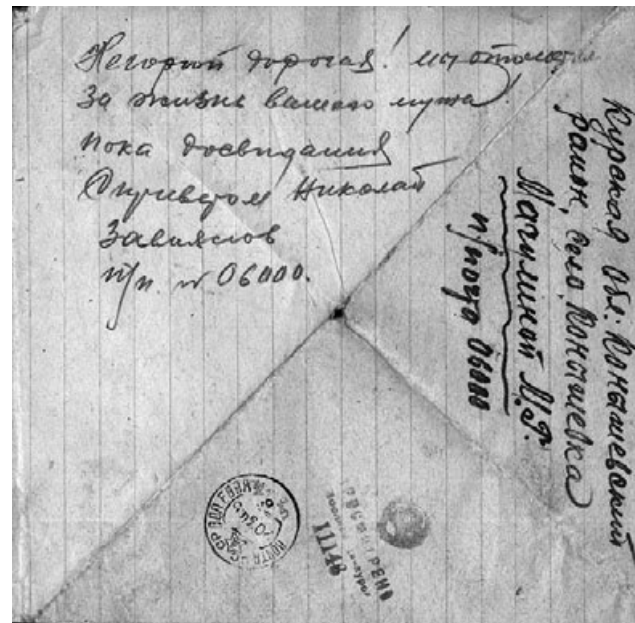 Негорюй дорогая! мы отомстим
За жизнь вашего мужа!
пока досвидания
Сприветом Николай
Завьялов
п/п. № 06000.
Курская обл. Конышевский
район, село Конышевка
М.Г.
п/почта 06000
ПОЧТА СССР
ПРОСМОТРЕНО
Военной Цензурой